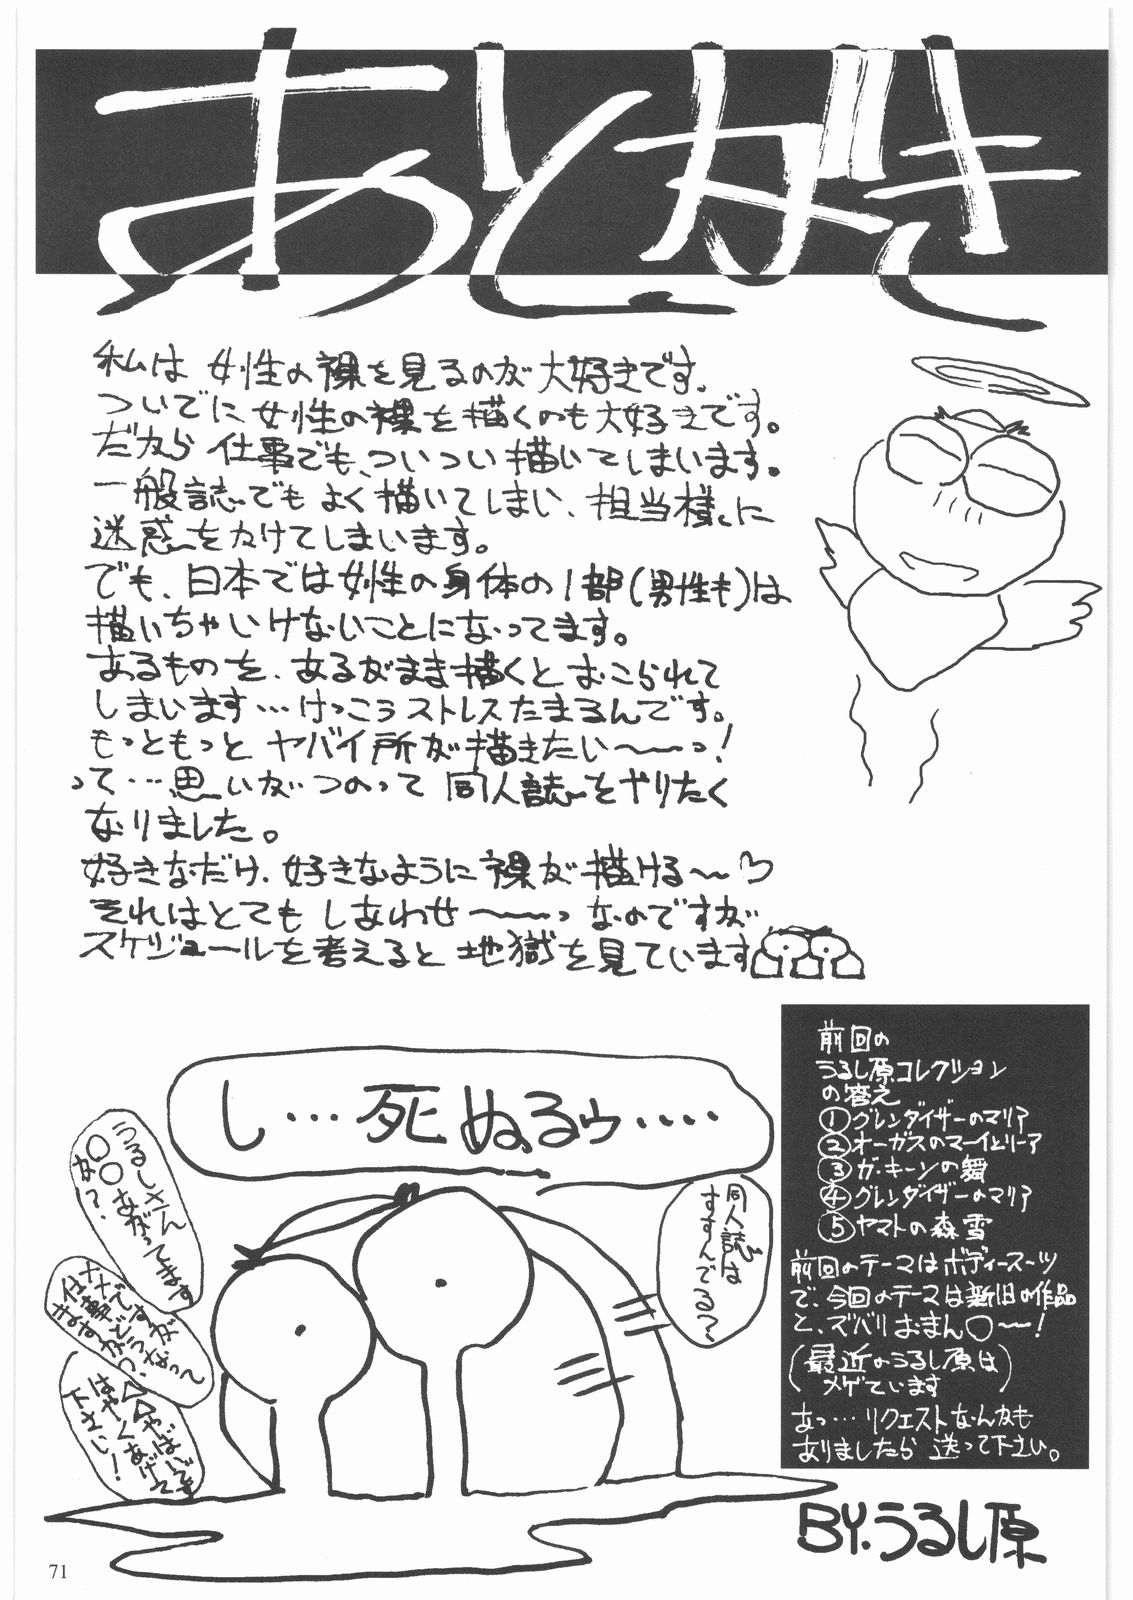 あとがき
私は女性の裸を見るのが大好きです。
ついでに女性の裸を描くのも大好きです。
だから仕事でも、ついつい描いてしまいます。
一般誌でもよく描いてしまい、担当様に
迷惑をかけてしまいます。
でも、日本では女性の身体の1部(男性も)は
描いちゃいけないことになってます。
あるものを、あるがまま描くとおこられて
しまいます…けっこうストレスたまるんです。
もっともっとヤバイ所が描きたい〜〜っ!
って…思いがつのって同人誌をやりたく
なりました。
好きなだけ、好きなように裸が描ける〜♡
それはとてもしあわせ〜〜っなのですが
スケジュールを考えると地獄を見ています
し…死ぬるゥ‥‥
うるしさん
〇〇あがってます
か?
同人誌は
すすんでる?
はやくあげて
下さい!
前回の
うるし原コレクション
の答え
①グレンダイザーのマリア
②オーガスのマーイとリーア
③ガ・キーンの舞
④グレンダイザーのマリア
⑤ヤマトの森雪
前回のテーマはボディースーツ
で、今回のテーマは新旧の作品
と、ズバリおまん〇〜!
(最近のうるし原は
メゲています)
あっ…リクエストなんかも
ありましたら送って下さい。
BY.うるし原
71